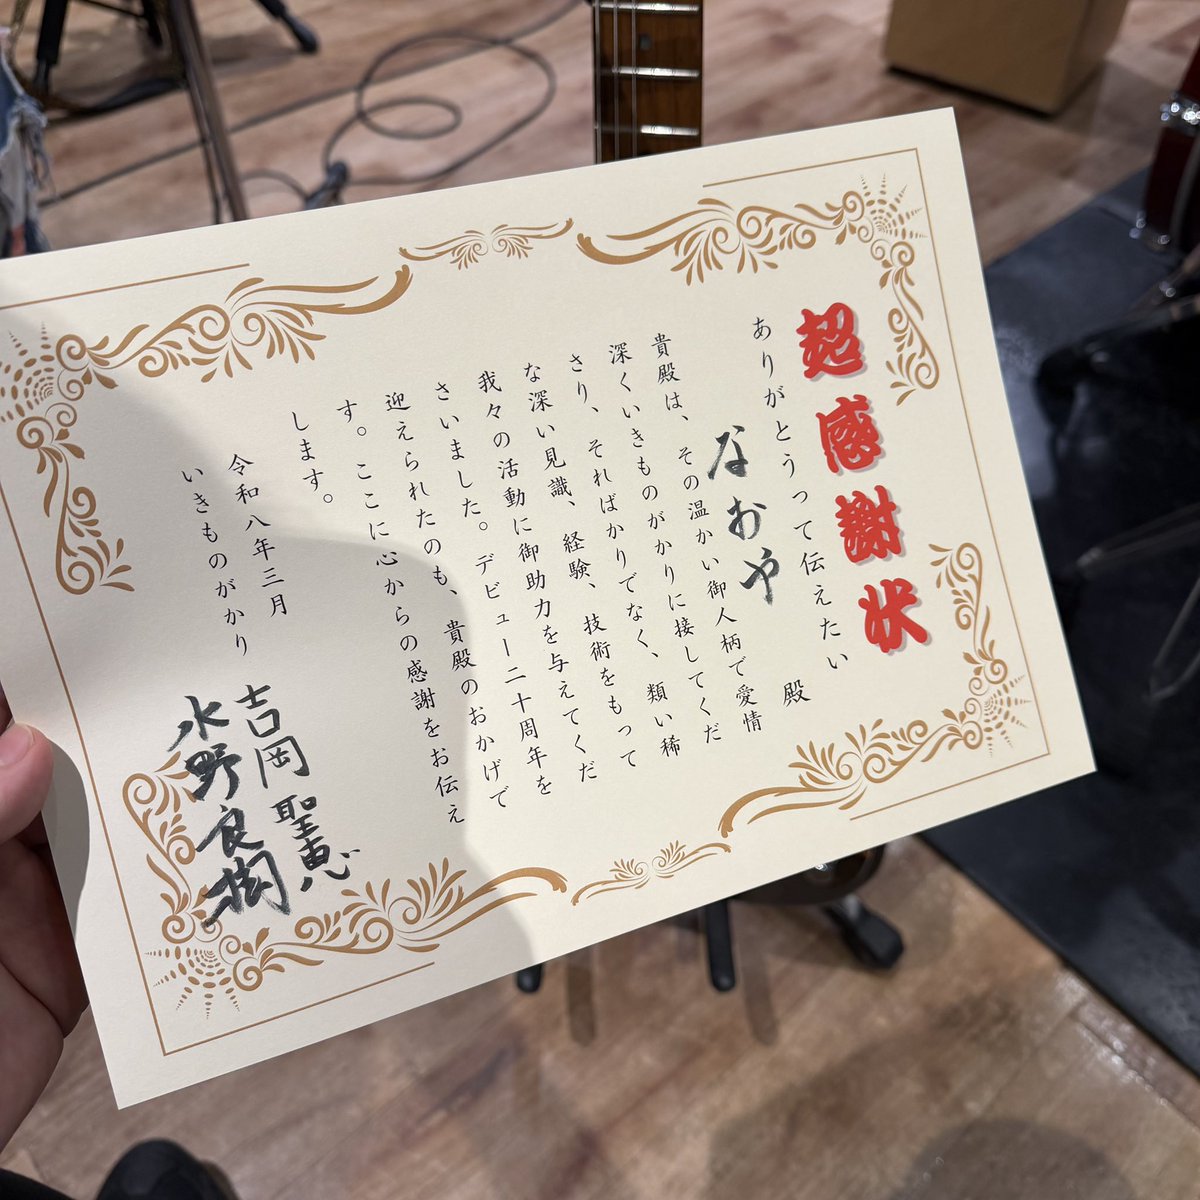 超感謝状
ありがとうって伝えたい
なおや 殿
貴殿は、その温かい御人柄で愛情
深くいきものがかりに接してくだ
さり、そればかりでなく、類い稀
な深い見識、経験、技術をもって
我々の活動に御助力を与えてくだ
さいました。デビュー二十周年を
迎えられたのも、貴殿のおかげで
す。ここに心からの感謝をお伝え
します。
令和八年三月
いきものがかり
吉岡聖恵
水野良樹